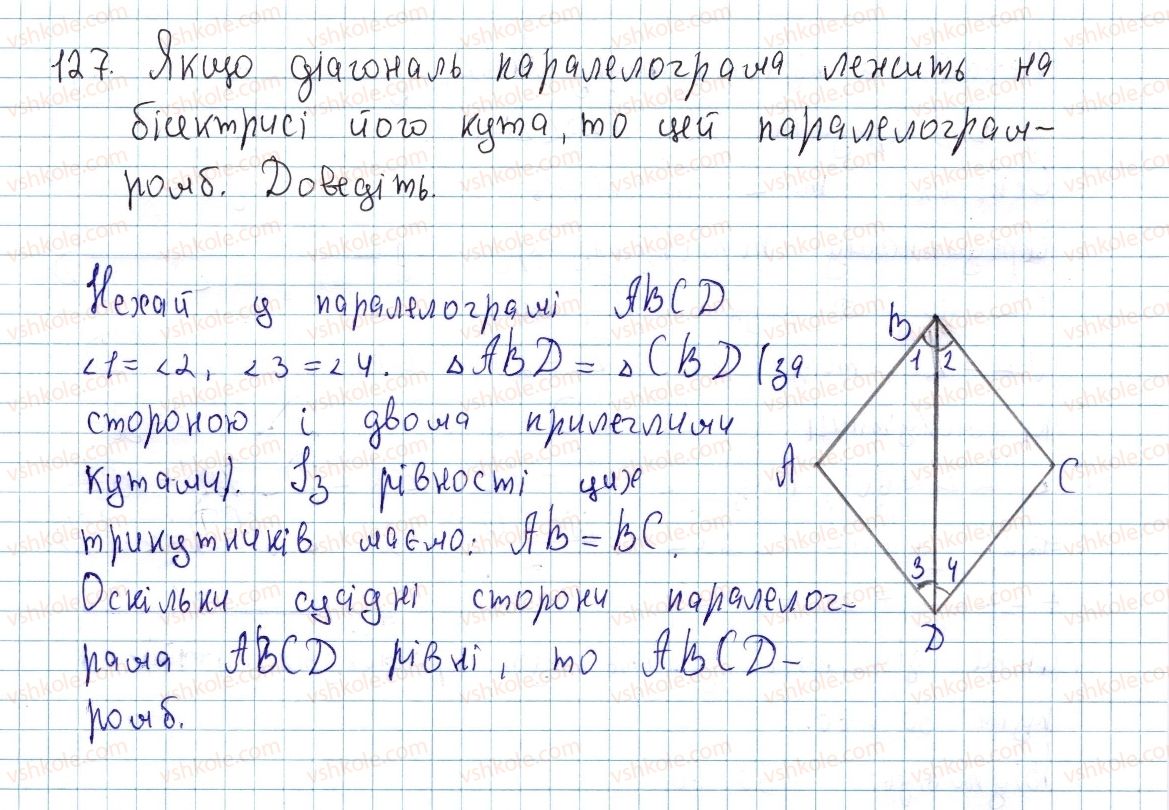 127. Якщо діагональ паралелограма лежить на
бісектрисі його кута, то цей паралелограм–
ромб. Доведіть.
Нехай у паралелограмі ABCD
∠1=∠2, ∠3=∠4. ΔABD = ΔCBD (за
стороною і двома прилеглими
кутами). Із рівності цих
трикутників маємо: AB=BC.
Оскільки сусідні сторони паралелог-
рама ABCD рівні, то ABCD–
ромб.
B
1 2
A
C
3 4
D
vshkole.com